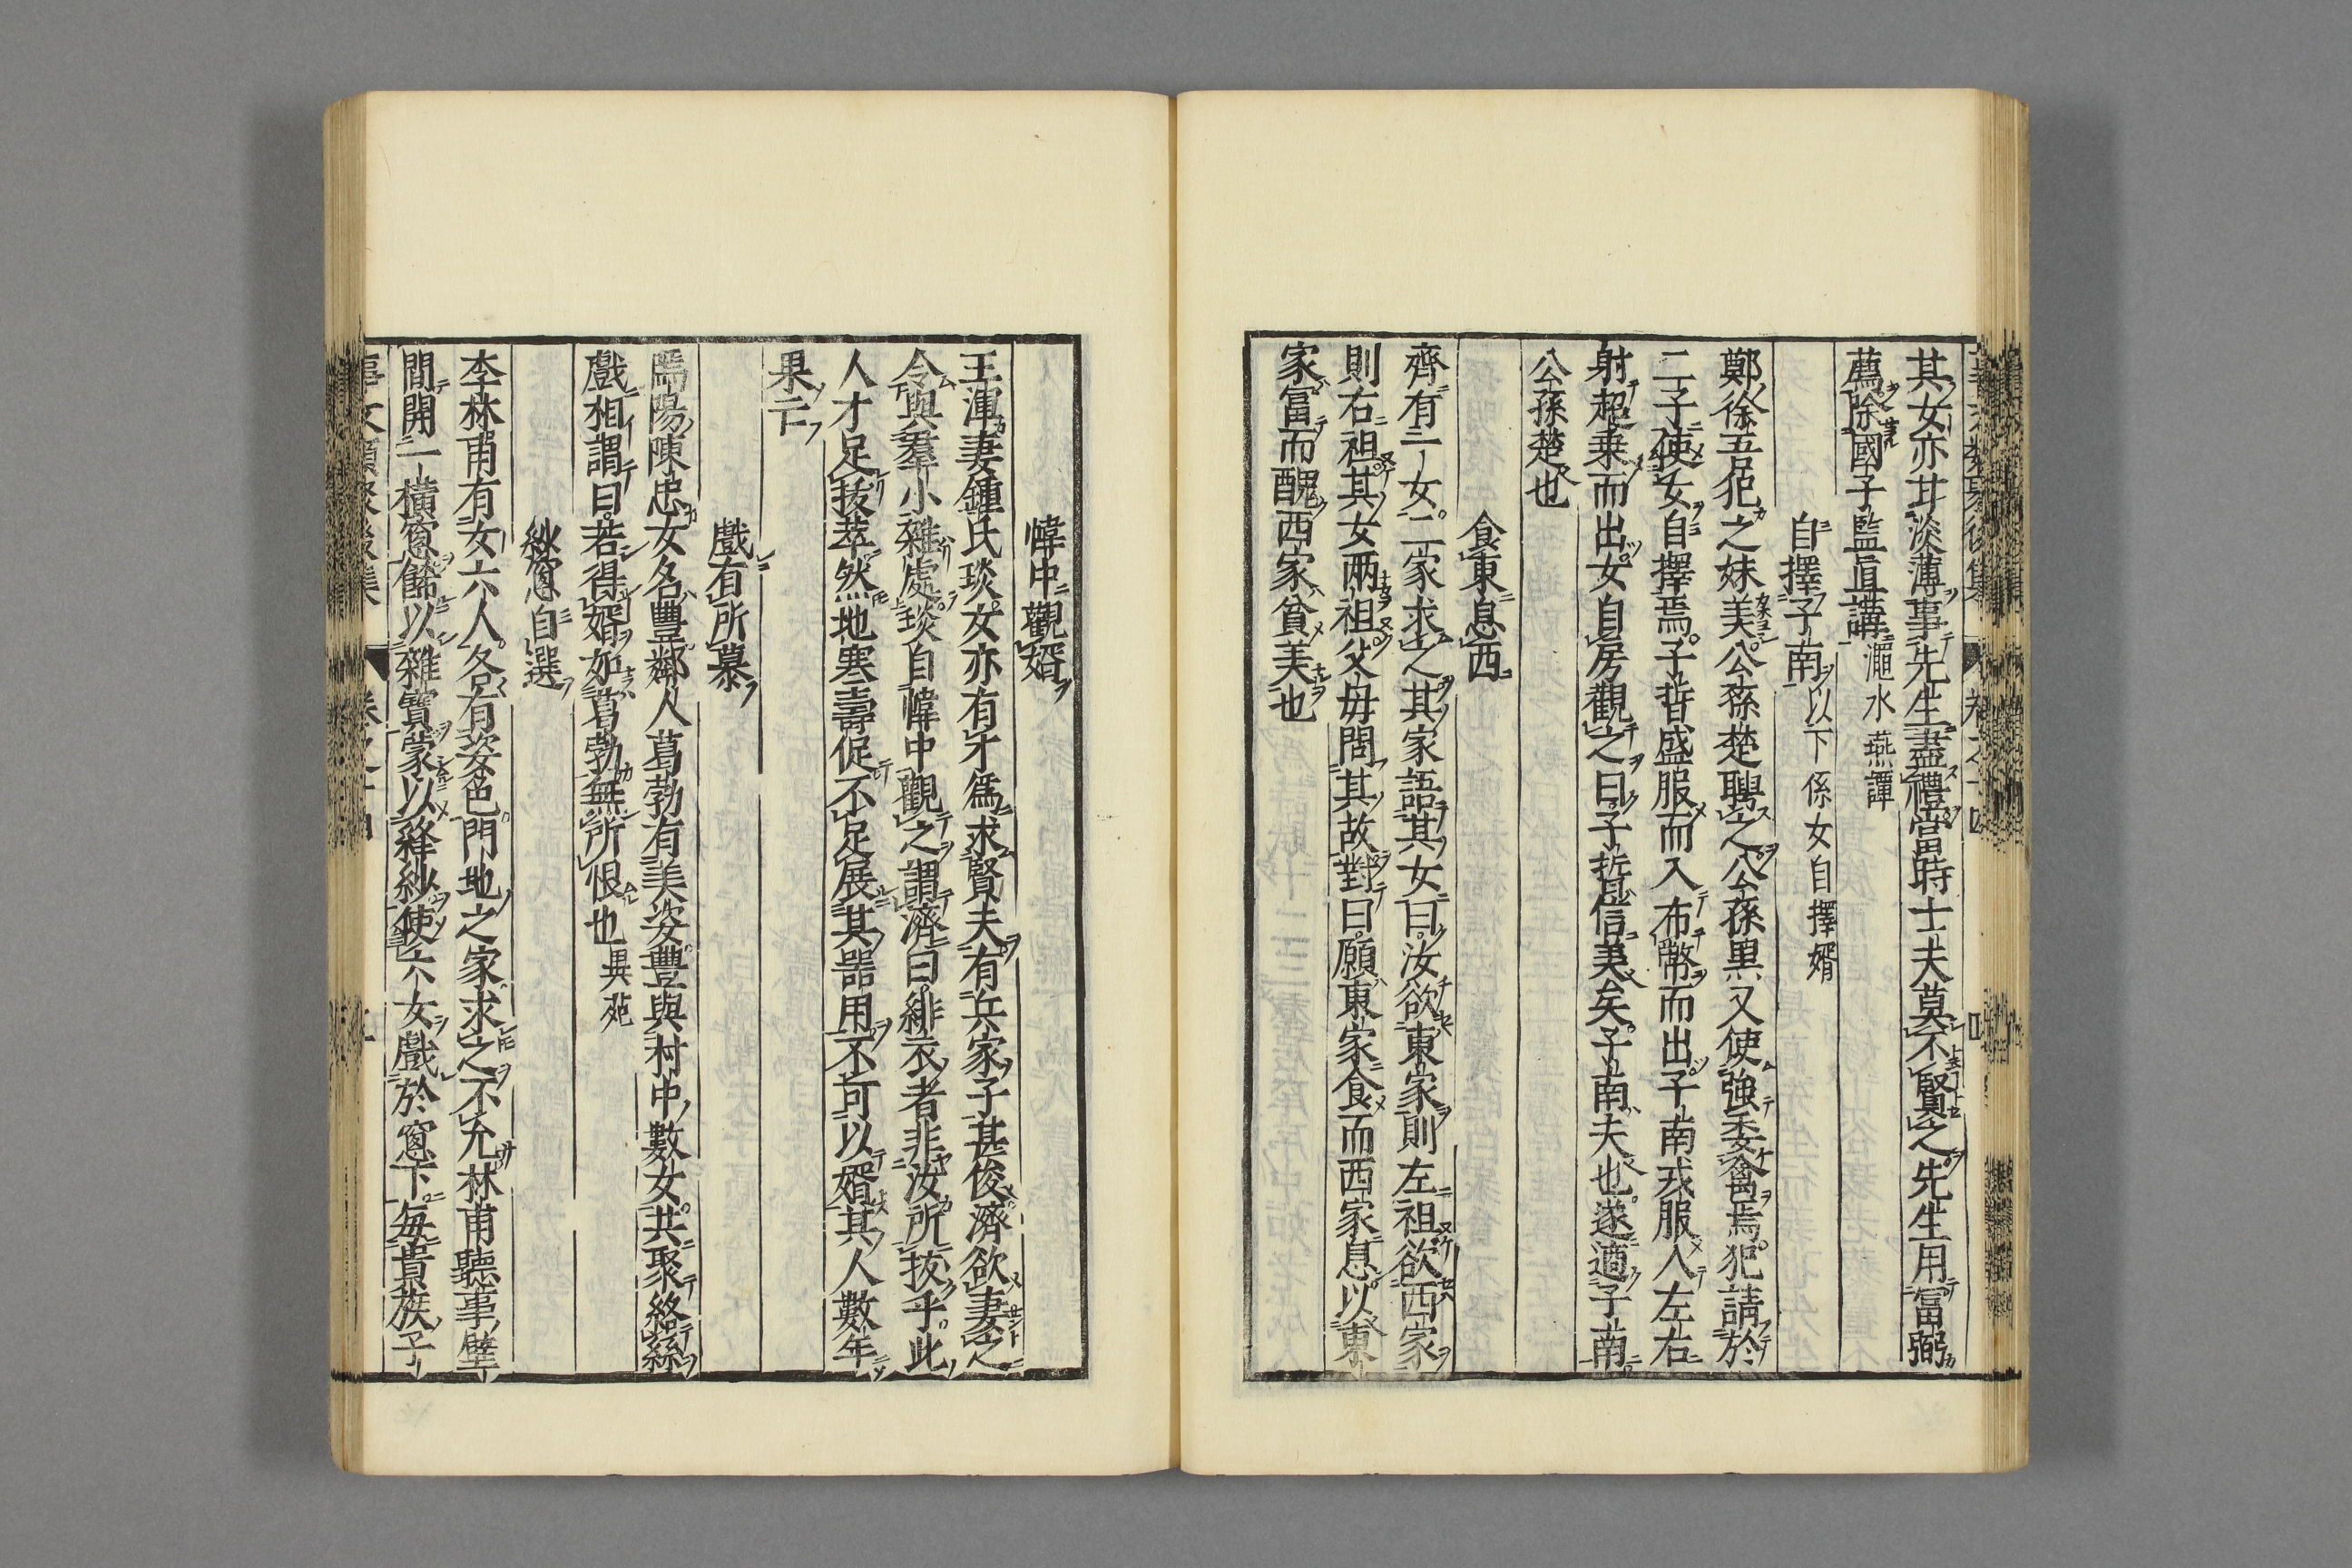 其女亦甘淡薄事先生盡禮當時士夫莫不賢之先生用富弼
薦除國子監直講 澠水燕譚
自擇子南 以下係女自擇婿
鄭徐吾犯之妹美公孫楚聘之公孫黒又使強委禽焉犯請於
二子使女自擇焉子晳盛服而入布幣而出子南戎服入左右
射超乗而出女自房觀之曰子晳信美矣子南夫也遂適子南
公孫楚也
食東息西
齊有一女二家求之其家語其女曰汝欲東家則左袒欲西家
則右袒其女兩袒父母問其故對曰願東家食而西家息以東
家富而醜西家貧美也
幃中觀婿
王渾妻鍾氏琰女亦有才為求賢夫有兵家子甚俊濟欲妻之
令與羣小雜處琰自幃中觀之謂濟曰緋衣者非汝所拔乎此
人才足拔萃然地寒壽促不足展其器用不可以婿其人數年
果亡
戲有所慕
焉陽陳忠女名豊鄰人葛勃有美姿豊與村中數女共聚絡絲
戲相謂曰若得婿如葛勃無所恨也 異苑
紗窓自選
李林甫有女六人各有姿色門地之家求之不允林甫聽事壁
間開一横窓餙以雜寶蒙以絳紗使六女戲於窓下毎貴族子
事文類聚後集 卷之十四